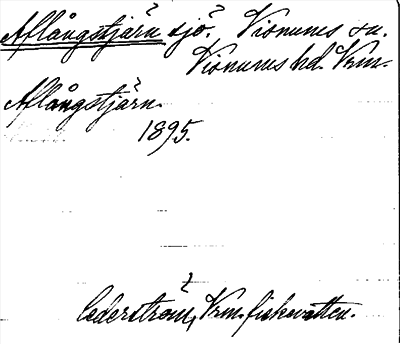 Aflångstjärn sjö, Visnums sn.
Visnums hd. Vrm.
Aflångstjärn.
1895.
Cederström, Vrm. fiskevatten.